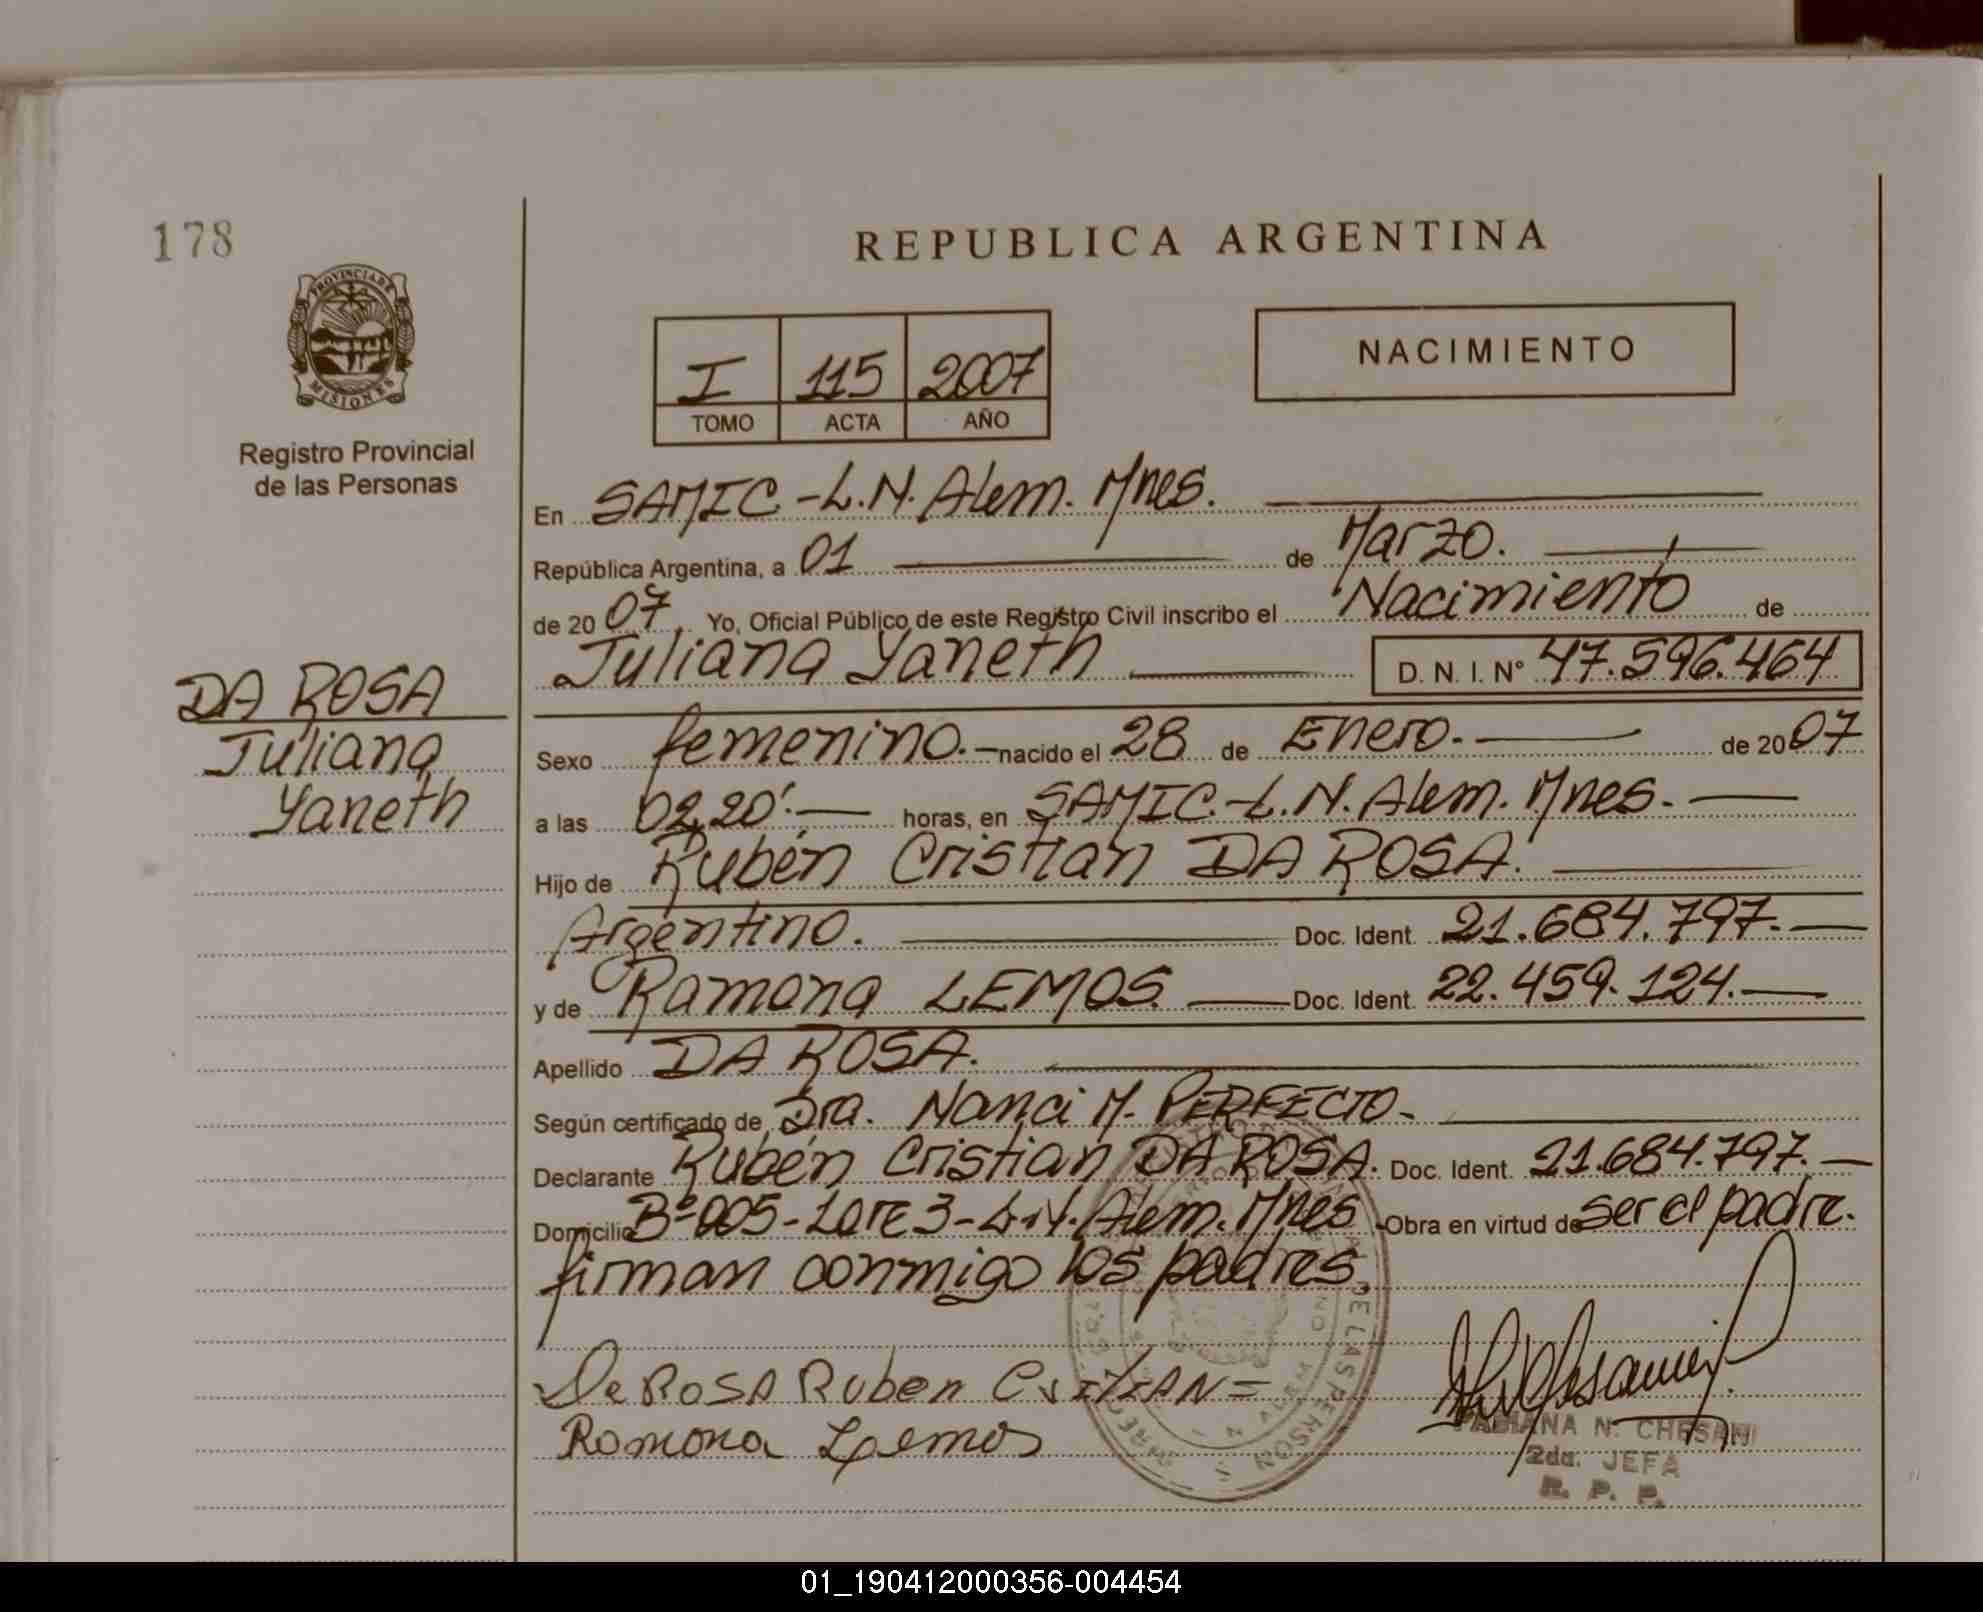 178
REPUBLICA ARGENTINA
PROVINCIA DE
MISIONES
Registro Provincial
de las Personas
I 115 2007
TOMO ACTA AÑO
NACIMIENTO
En SAMIC - L.N. Alem. Mnes.
República Argentina, a 01 de Marzo.
de 2007 Yo, Oficial Público de este Registro Civil inscribo el Nacimiento de
Juliana Yaneth D. N. I. Nº 47.596.464
DA ROSA
Juliana
Yaneth
Sexo femenino. - nacido el 28 de Enero. de 2007
a las 02,20'. horas, en SAMIC.-L.N. Alem. Mnes.
Hijo de Rubén Cristian DA ROSA.
Argentino. Doc. Ident. 21.684.797.
y de Ramona LEMOS. Doc. Ident. 22.459.124.
Apellido DA ROSA.
Según certificado de Dra. Nanci M. PERFECTO.
Declarante Rubén Cristian DA ROSA. Doc. Ident. 21.684.797.
Domicilio Bº 005 - Lote 3 - L.N. Alem. Mnes Obra en virtud de ser el padre.
firman conmigo los padres.
De ROSA Ruben
Ramona Lemos
FABIANA N. CHESANI
2da. JEFA
R. P. P.
01_190412000356-004454